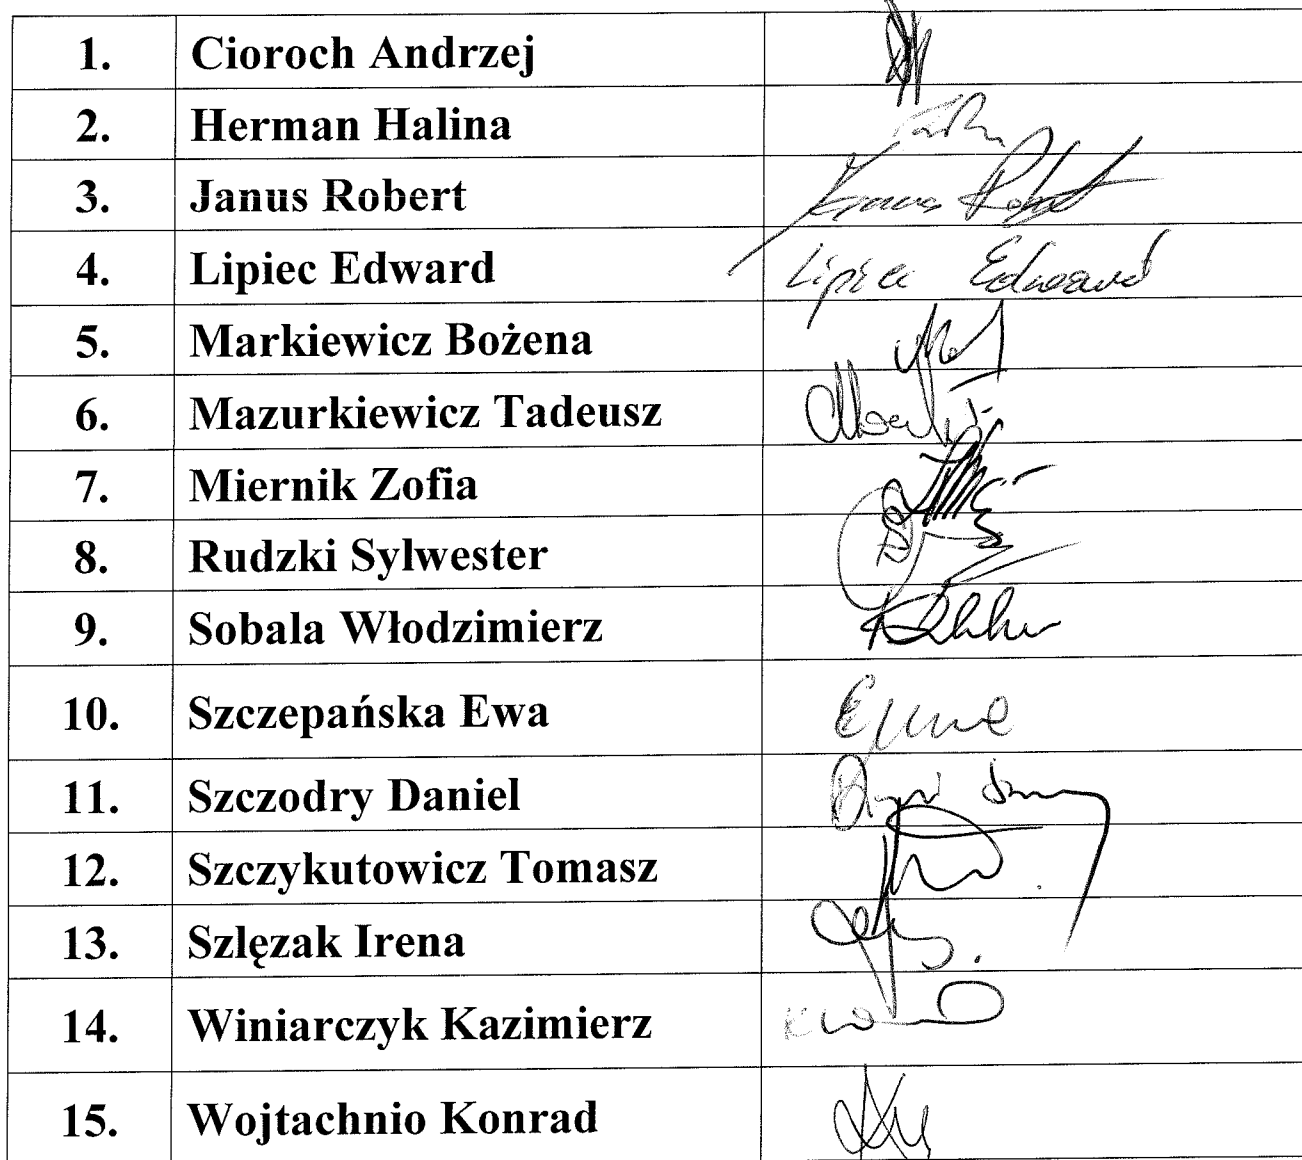 1. Cioroch Andrzej
2. Herman Halina
3. Janus Robert Janus Robert
4. Lipiec Edward Lipiec Edward
5. Markiewicz Bożena
6. Mazurkiewicz Tadeusz
7. Miernik Zofia
8. Rudzki Sylwester
9. Sobala Włodzimierz
10. Szczepańska Ewa
11. Szczodry Daniel
12. Szczykutowicz Tomasz
13. Szlęzak Irena
14. Winiarczyk Kazimierz
15. Wojtachnio Konrad